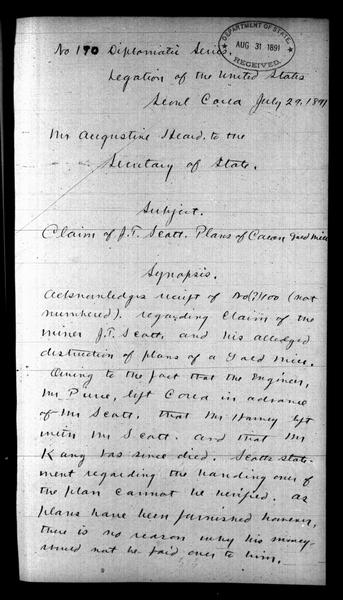 DEPARTMENT OF STATE,
AUG 31 1891
RECEIVED.
No 190 Diplomatic Series.
Legation of the United States
Seoul Corea July 29, 1891
Mr Augustine Heard, to the
Secretary of State.
Subject.
Claim of J.T. Scott. Plans of Corean Gold Mine
Synopsis.
Acknowledges receipt of No(?)100 (not
numbered), regarding claim of the
miner J.T. Scott, and his alledged
distruction of plans of a Gold Mine.
Owing to the fact that the Engineer,
Mr Purce, left Corea in advance
of Mr Scott, that Mr Harvey left
with Mr Scott. and that Mr
Kang has since died. Scotts state-
ment regarding the handing over of
the plan cannot be verified. As
plans have been furnished however,
there is no reason why his money
should not be paid over to him.